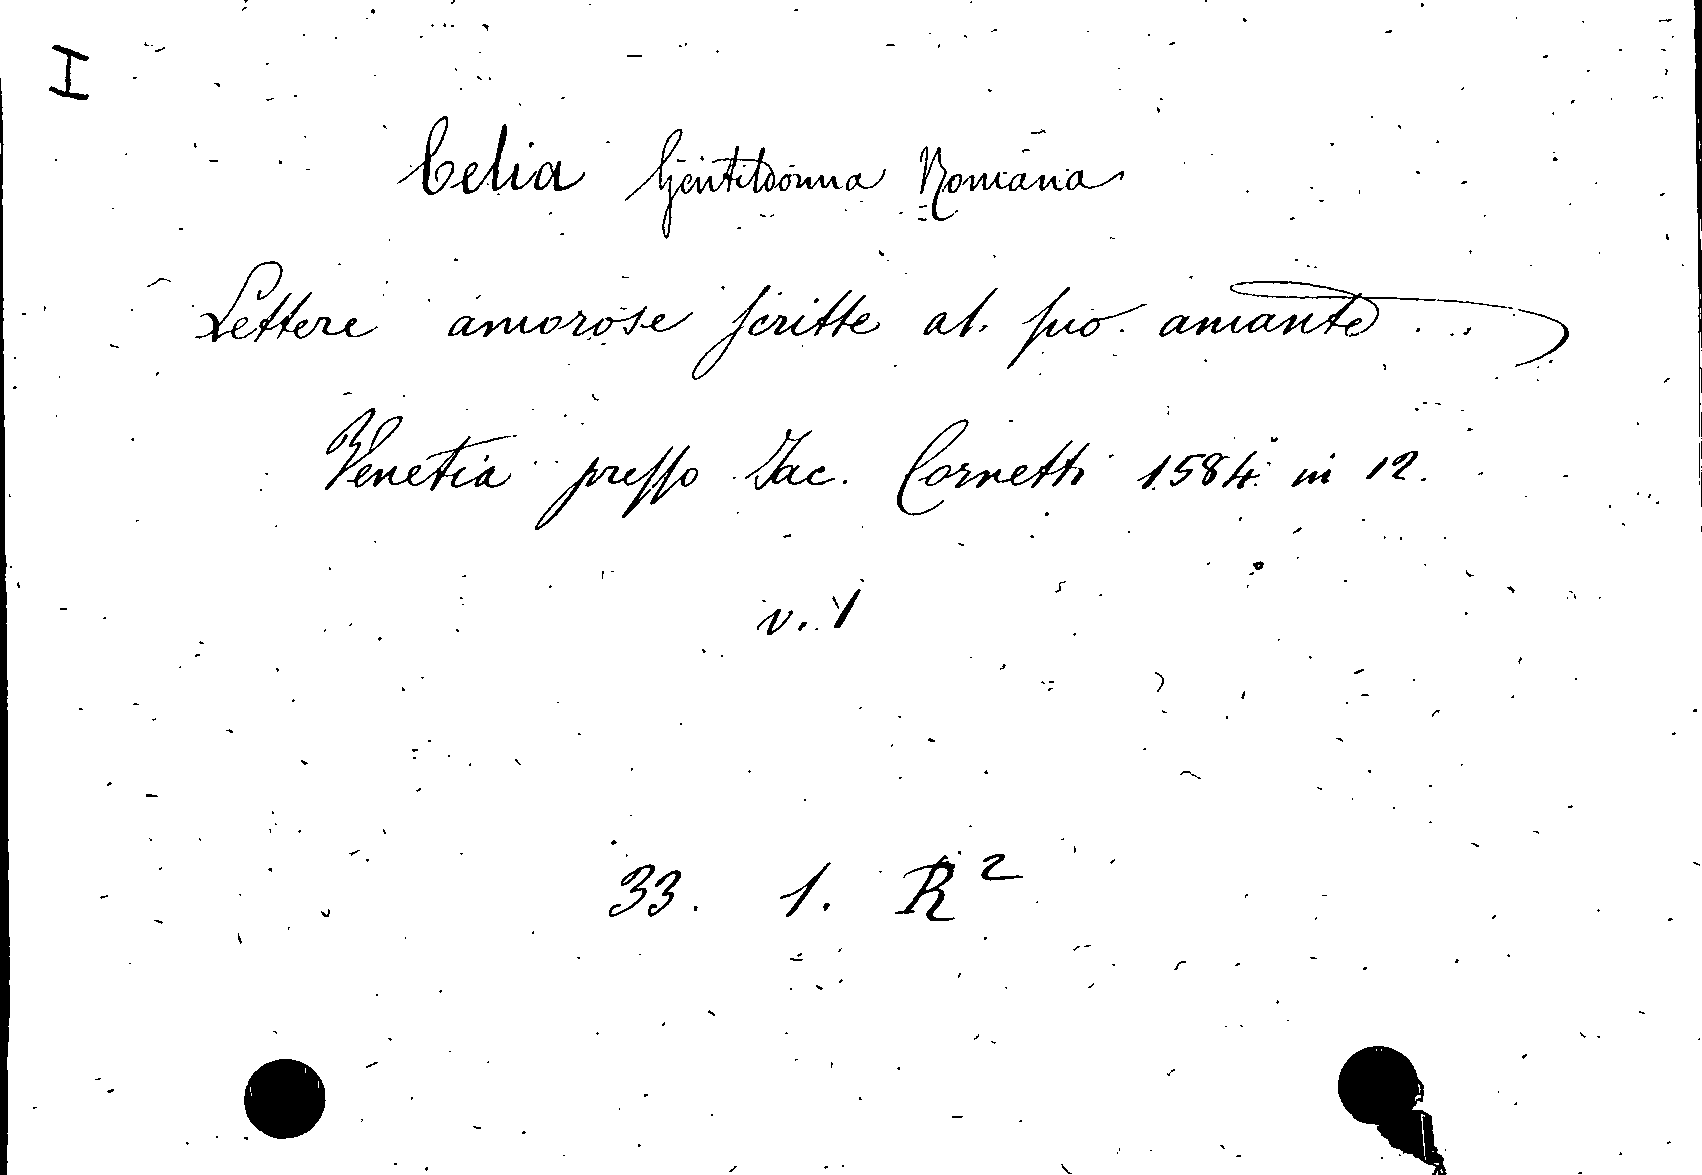 I
Celia Gentildonna Romana
Lettere amorose scritte al suo amante ...
Venetia presso Jac. Cornetti 1584 in 12.
v. 1
33. 1. R²